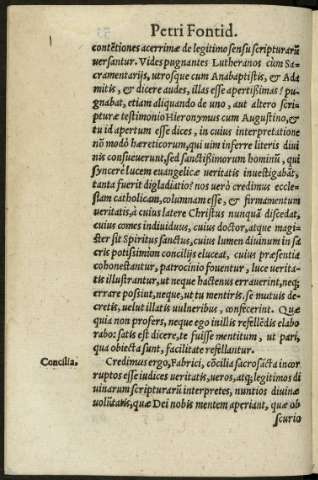 Petri Fontid.
contẽtiones acerrimæ de legitimo sensu scripturarũ
uersantur. Vides pugnantes Lutheranos cùm Sa-
cramentarijs, utrosque cum Anabaptistis, & Ada
mitis, & dicere audes, illas esse apertißimas? pu-
gnabat, etiam aliquando de uno, aut altero scri-
pturæ testimonio Hieronymus cum Augustino, &
tu id apertum esse dices, in cuius interpretatione
nõ modò hæreticorum, qui uim inferre literis diui
nis consueuerunt, sed sanctißimorum hominũ, qui
syncerè lucem euangelicæ ueritatis inuestigabãt,
tanta fuerit digladiatio? nos uerò credimus eccle-
siam catholicam, columnam esse, & firmamentum
ueritatis, à cuius latere Christus nunquã discedat,
cuius comes indiuiduus, cuius doctor, atque magi-
ster sit Spiritus sanctus, cuius lumen diuinum in sa
cris potißimùm concilijs eluceat, cuius præsentia
cohonestantur, patrocinio fouentur, luce uerita-
tis illustrantur, ut neque hactenus errauerint, neq;
errare poßint, neque, ut tu mentiris, se mutuis de-
cretis, uelut illatis uulneribus, confecerint. Quæ
quia non profers, neque ego in illis refellẽdis elabo
rabo: satis est dicere, te fuisse mentitum, ut pari,
qua obiecta sunt, facilitate refellantur.
Concilia.
Credimus ergo, Fabrici, cõcilia sacrosãcta incor
ruptos esse iudices ueritatis, ueros, atq; legitimos di
uinarum scripturarũ interpretes, nuntios diuinæ
uolũtatis, quæ Dei nobis mentem aperiant, quæ ob
scurio